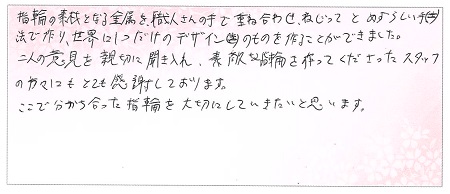 指輪の素材となる金属を職人さんの手で重ね合わせ、ねじって とめずらしい手
法で作り、世界に1つだけのデザインのものを作ることができました。
二人の意見を親切に聞き入れ、素敵な指輪を作ってくださったスタッフ
の方々にもとても感謝しております。
ここで分かち合った指輪を大切にしていきたいと思います。